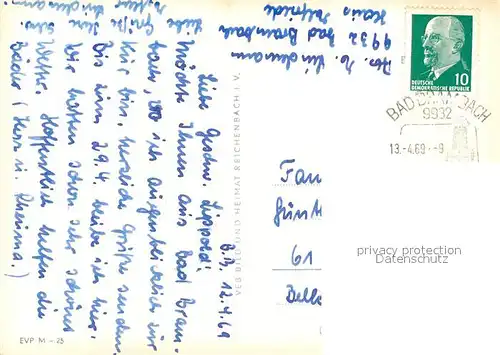 B. Br., 12.4.69
Liebe Geschw. Lippold!
Möchte Ihnen aus Bad Bram-
bach, wo ich augenblicklich zur
Kur bin, herzliche Grüße senden.
Bis zum 29.4. bleibe ich hier.
Wir hatten schon sehr schönes
Wetter. Hoffentlich helfen die
Bäder (Herz u. Rheuma.)
Liebe Grüße Ihre
Lindemann
Lindemann
9932 Bad Brambach
Haus
DEUTSCHE
DEMOKRATISCHE REPUBLIK
10
BAD BRAMBACH
9932
13.-4.69.-9
VEB BILD UND HEIMAT REICHENBACH I. V.
Fam
Günt
61
privacy protection
Datenschutz
EVP M -.25